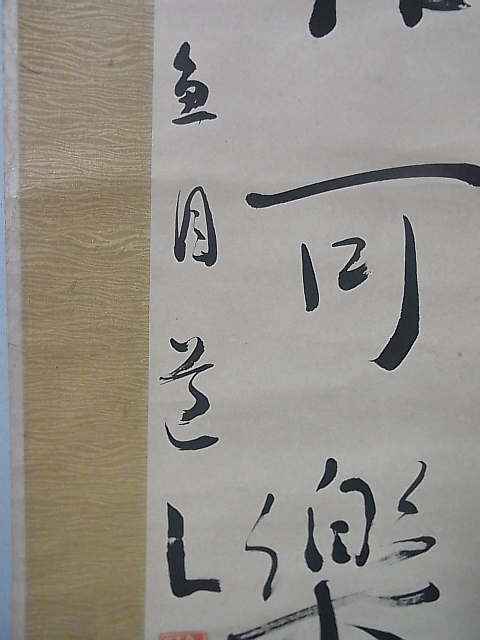 可樂
魚目道人